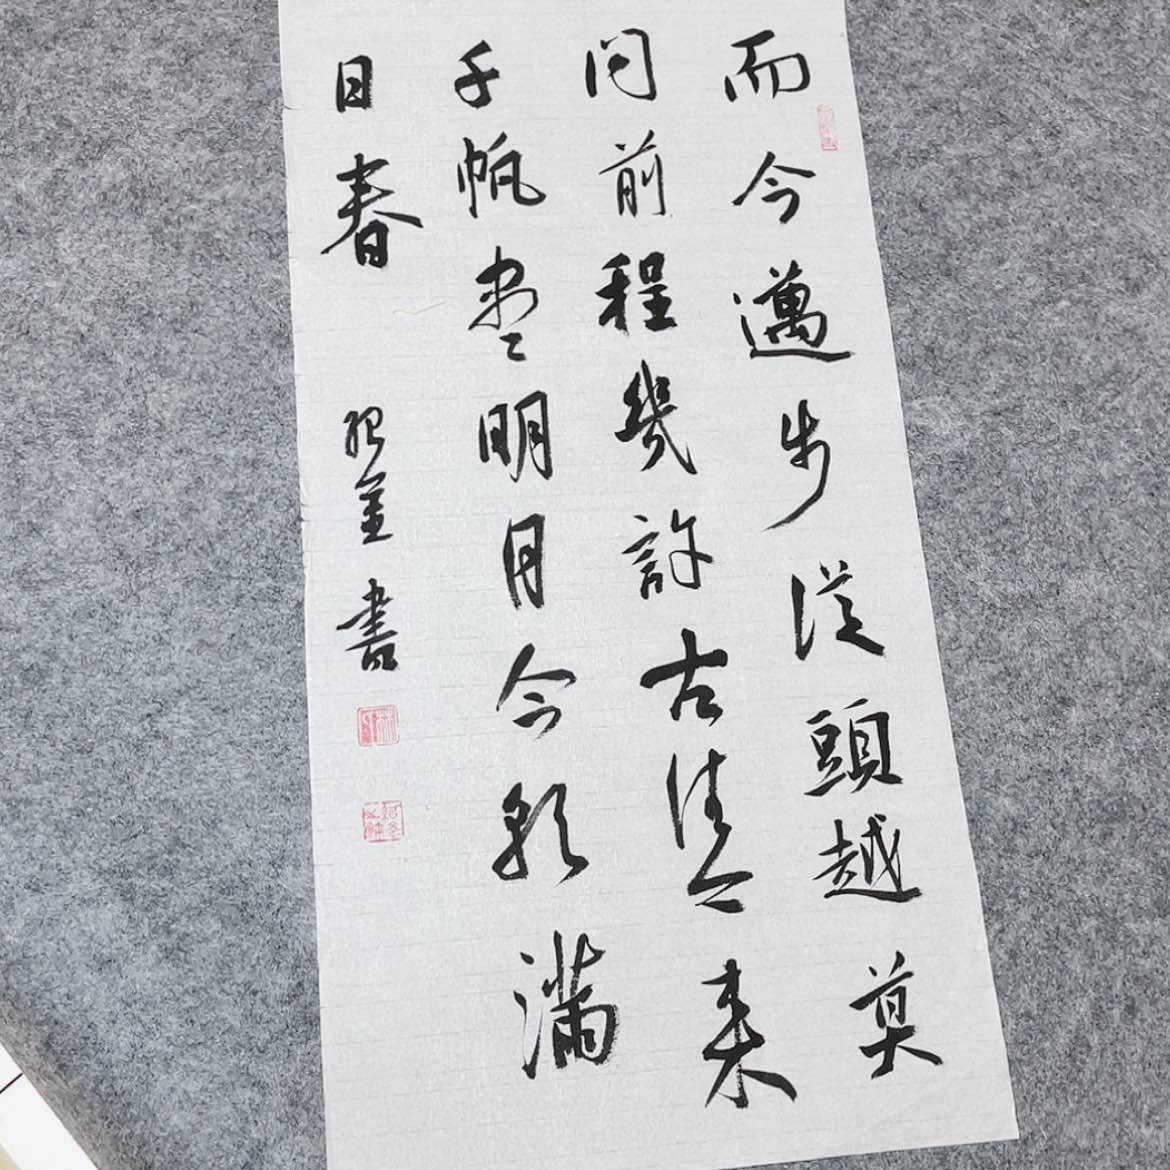 而今邁步從頭越莫
问前程幾許古往今来
千帆盡明月今朝滿
目春
書